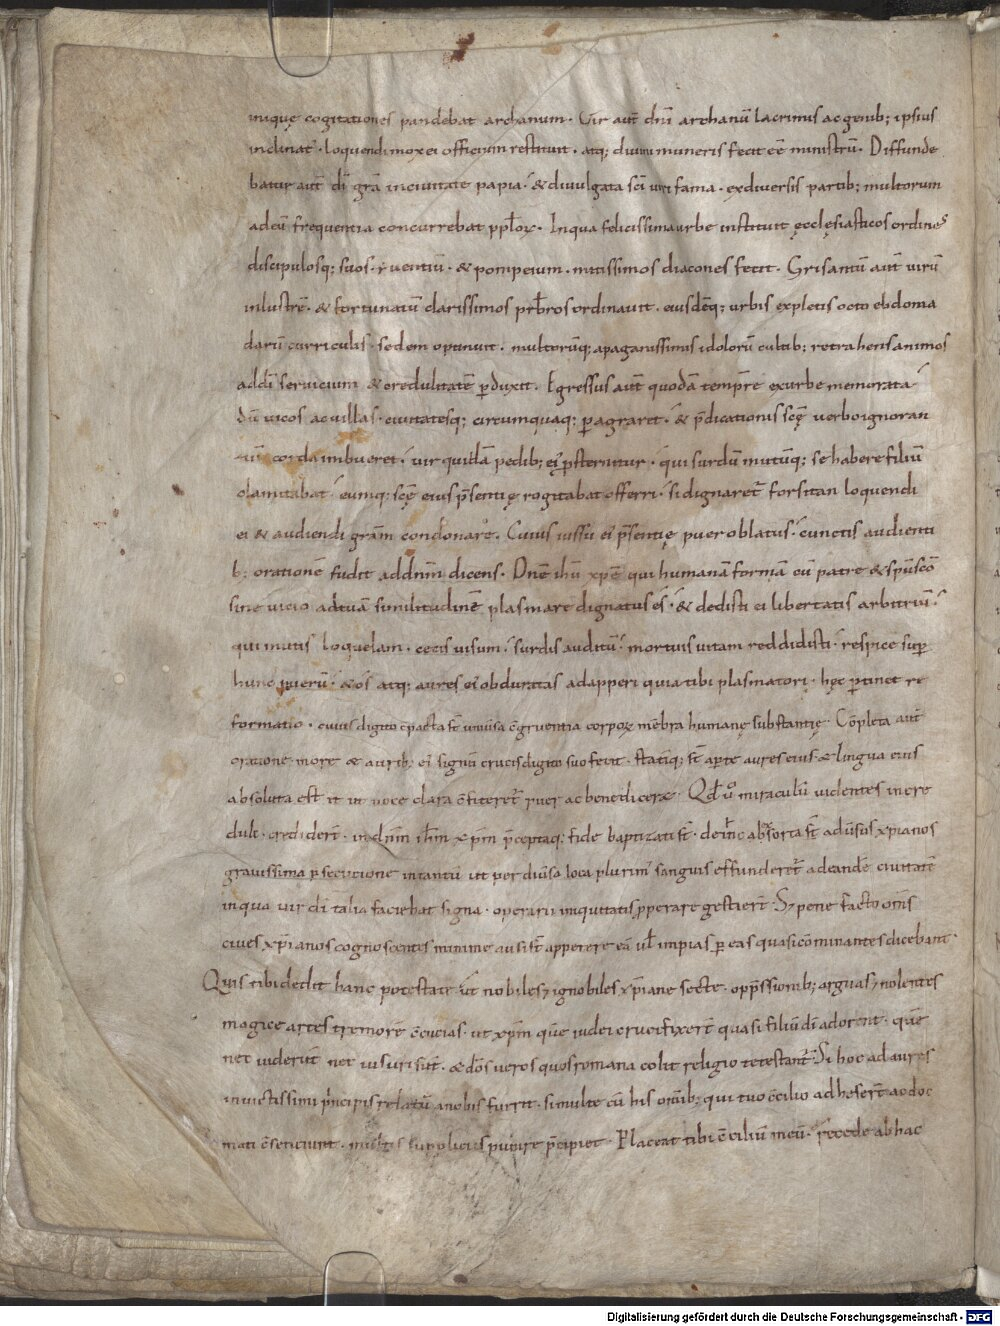 iniquę cogitationes pandebat archanum. Vir aut̄ dn̄i archanū lacrimis ac genib; ipsius
inclinat̄. loquendi mox ei officium restituit. atq; diuini muneris fecit eē ministrū. Diffunde
batur aut̄ dī gr̄a in ciuitate papia. & diuulgata sc̄i uiri fama. ex diuersis partib; multorum
ad eū frequentia concurrebat pp̄lor̄. In qua felicissima urbe instituit ęcclesiasticos ordines
discipulosq; suos. iuuentiū. & pompeium. mitissimos diacones fecit. Grisantū aut̄ uirū
inlustrē. & fortunatū clarissimos pr̄bros ordinauit. eiusdēq; urbis expletis octo ebdoma
darū curriculis. sedem optinuit. multorūq; a paganissimis idolorū cultib; retrahens animos
ad dī seruicium & credulitatē ꝑduxit. Egressus aut̄ quodā tempr̄e ex urbe memorata
dū uicos ac uillas. ciuitatesq; circumquaq; ꝑagraret. & p̄dicationis scę̄ uerbo ignoran
tiū corda imbueret. uir quidā pedib; ei p̄sternitur. qui surdū mutūq; se habere filiū
clamitabat. eumq; scę̄ eius p̄sentię rogitabat offerri. si dignaret̄ forsitan loquendi
ei & audiendi gr̄am condonare. Cuius iussu ei p̄sentię puer oblatus. cunctis audienti
b; orationē fudit ad dn̄m dicens. Dn̄e ih̄u xp̄e qui humanā formā cū patre & sp̄u sc̄o
sine uicio ad tuā similitudinē plasmare dignatus es. & dedisti ei libertatis arbitriū.
qui mutis loquelam. cecis uisum. surdis auditū. mortuis uitam reddidisti. respice sup̄
hunc puerū. & os atq; aures ei obduratas adapperi quia tibi plasmatori. hęc ꝑtinet re
formatio. cuius digito cp̄acta st̄ uniūsa c̄gruentia corpor̄ mēbra humanę substantię. Cōpleta aut̄
oratione more & aurib; ei signū crucis digito suo fecit. statīq; st̄ aꝑte aures eius & lingua eius
absoluta est ita ut uoce clara c̄fiteret̄ puer ac benediceret. Qd̄ u᷒ miraculū uidentes incre
duli. crediderī. in dn̄m ih̄m xp̄m p̄ceptaq; fide baptizati st̄. dehinc absorta st̄ aduīsus xp̄ianos
grauissima ꝑsecutione in tantū ut per diūsa loca plurim̄ sanguis effunderet̄ ad eandē ciuitatē
in qua uir dī talia faciebat signa. operarii iniquitatis ꝓperare gestierī. Sꝫ pene facto om̄s
ciues xp̄ianos cognoscentes minime ausi st̄ appetere eā ul̄ impias ꝑ eas quasi cōminantes dicebant
Quis tibi dedit hanc potestatē ut nobiles ⁊ ignobiles xp̄iane secte. opp̄ssionib; arguas ⁊ nolentes
magice artes tremorē c̄cucias. ut xp̄m quē iudei crucifixerī quasi filiū dī adorent. quē
nec uiderūt nec uisuri sūt. & dōs ueros quos romana colit religio testestant̄. Si hoc ad aures
inuictissimi p̄ncipis relatū a nobis fuerit. simul te cū his omīb; qui tuo c̄cilio adheserī ac doc
mati c̄senciunt. suppliciis punire p̄cipiet. Placeat tibi c̄ciliū meū. recede ab hac
Digitalisierung gefördert durch die Deutsche Forschungsgemeinschaft - DFG